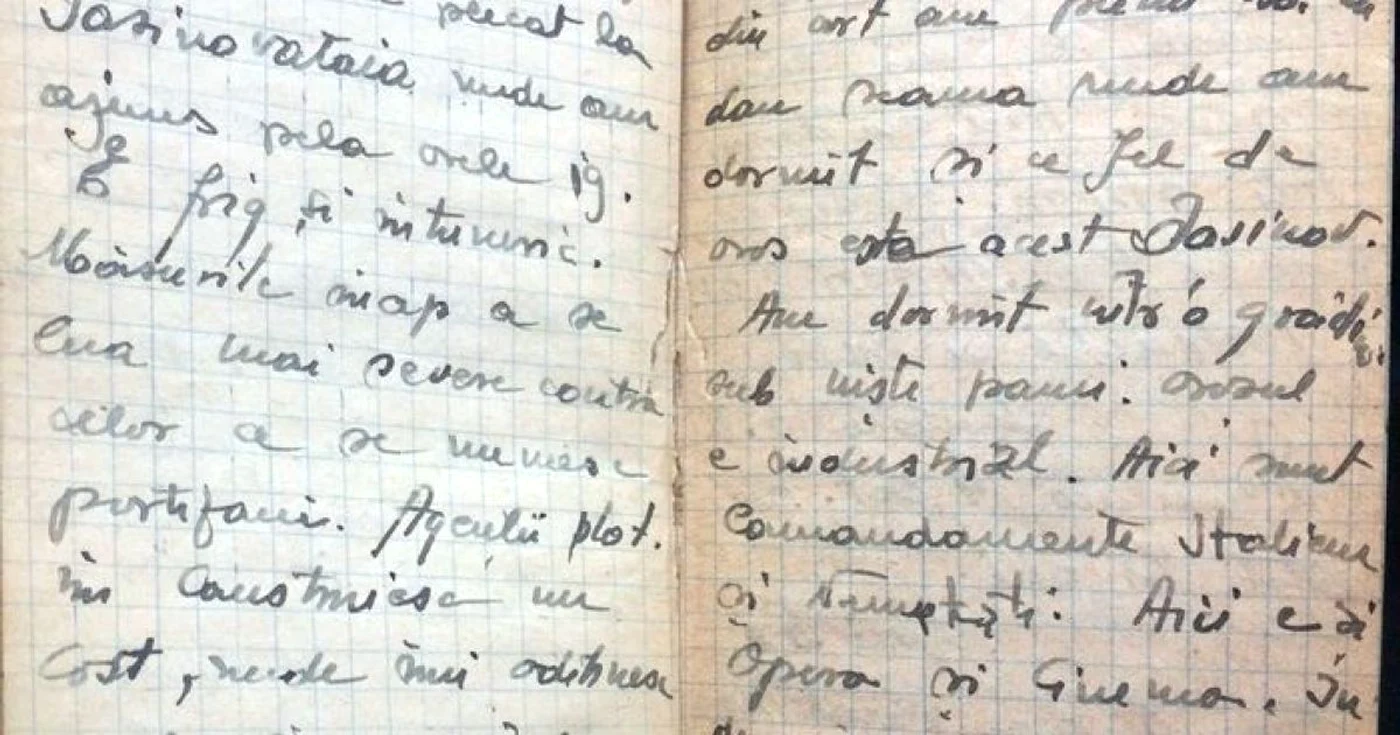 plecat la
Jasinovataia unde am
ajuns pela orele 19.
E frig și intuneric.
Măsurile incep a se
lua mai severe contra
celor ce se numesc
partizani. Agenții plot.
imi construiesc un
Cort, unde imi odihnesc
din cort am
dau seama unde am
dormit și ce fel de
oras este acest Jasinovat.
Am dormit intr'o grădi
sub niște pomi. orasul
e industrial. Aici sunt
Comandamente Italiene
și Nemțești. Aici e și
Opera și Cinema. In